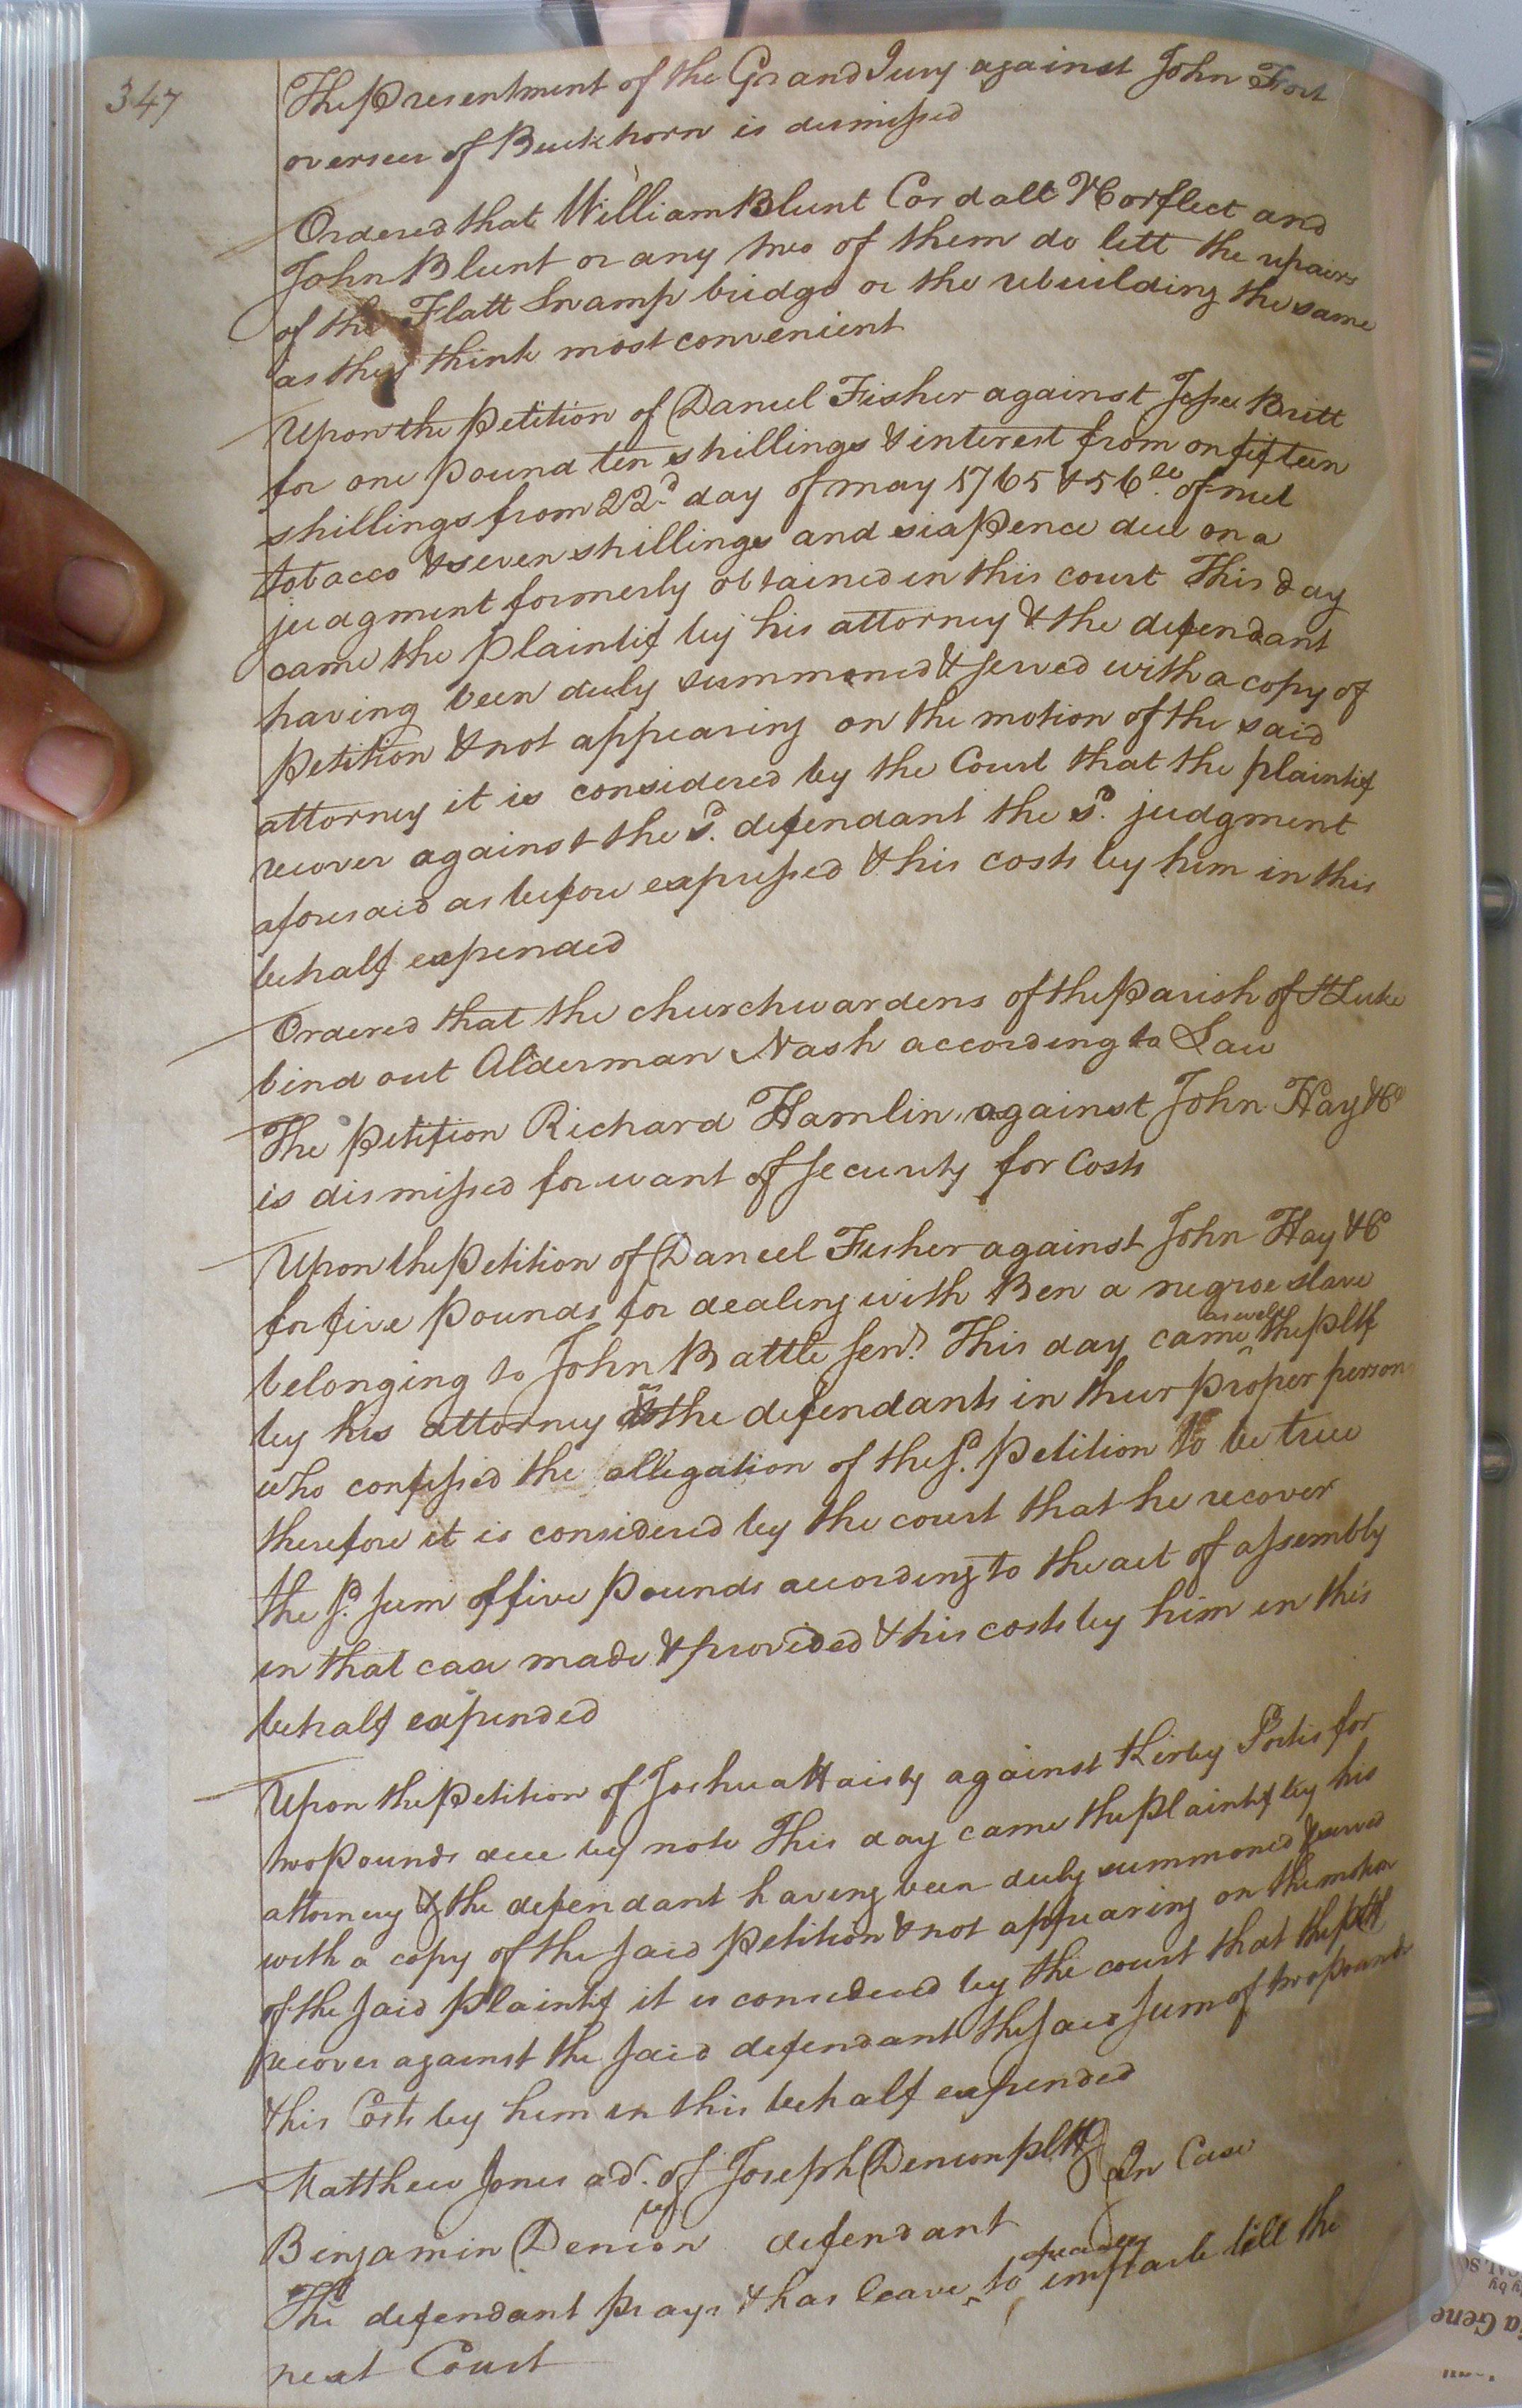 347
The Presentment of the Grand Jury against John Fort
overseer of Buckhorn is dismissed
Ordered that William Blunt Cordall Norfleet and
John Blunt or any two of them do lett the repairs
of the Flatt Swamp bridge or the rebuilding the same
as they think most convenient
Upon the Petition of Daniel Fisher against Jesse Britt
for one pound ten shillings & interest from on fifteen
shillings from 22d day of may 1765 & 56 lb. of nett
tobacco & seven shillings and sixpence due on a
judgment formerly obtained in this court This day
came the plaintif by his attorney & the defendant
having been duly summoned & served with a copy of
petition & not appearing on the motion of the said
attorney it is considered by the Court that the plaintif
recover against the sd. defendant the sd. judgment
aforesaid as before expressed & his costs by him in this
behalf expended
Ordered that the churchwardens of the Parish of St Luke
bind out Alderman Nash according to Law
The petition Richard Hamlin against John Hay & Co
is dismissed for want of security for Costs
Upon the Petition of Daniel Fisher against John Hay & Co
for five pounds for dealing with Ben a negroe slave
belonging to John Battle senr. This day came as well the pltf
by his attorney as the defendants in their proper person
who confessed the allegation of the sd. petition to be true
therefore it is considered by the court that he recover
the sd. sum of five pounds according to the act of assembly
in that case made & provided & his costs by him in this
behalf expended
Upon the Petition of Joshua Haisty against Kirby Portis for
two pounds due by note This day came the plaintif by his
attorney & the defendant having been duly summoned & served
with a copy of the said petition & not appearing on the motion
of the said plaintif it is considered by the court that the pltf
recover against the said defendant the said sum of two pounds
& his Costs by him in this behalf expended
Matthew Jones ad. of Joseph Denson pltf
In Case
Benjamin Denson defendant
The defendant prays & has leave to imparle till the
next Court